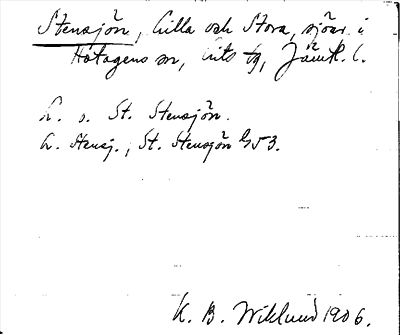 Stensjön, Lilla och Stora, sjöar i
Hotagens sn, Lits tg, Jämtl. l.
L. o. St. Stensjön.
L. Stensj., St. Stensjön 53.
K. B. Wiklund 1906.